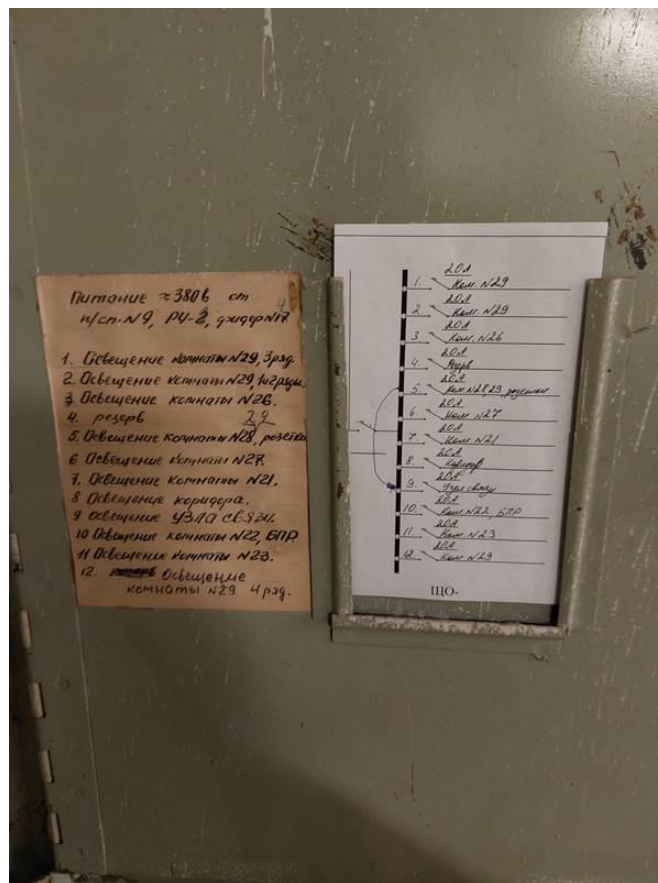 Питание ≈380в от
п/ст. N9, РУ-2, фидер N17
1. Освещение комнаты N29, 3 ряд.
2. Освещение комнаты N29, 1и2 ряды
3. Освещение комнаты N26.
4. резерв 29
5. Освещение комнаты N28, розетки
6 Освещение комнаты N27.
7. Освещение комнаты N21.
8 Освещение коридора.
9 Освещение УЗЛА СВЯЗИ.
10 Освещение комнаты N22, БПР
11 Освещение комнаты N23.
12. Освещение
комнаты N29 4 ряд.
20А
1. Ком. N29
20А
2. Ком. N29
20А
3 Ком. N26
20А
4. Резерв
20А
5. Ком. N28,29 розетки
20А
6. Ком. N27
20А
7. Ком. N21
20А
8. Коридор
20А
9. Узел связи
20А
10. Ком. N22, БПР
20А
11. Ком. N23
20А
12. Ком. N29
ЩО-